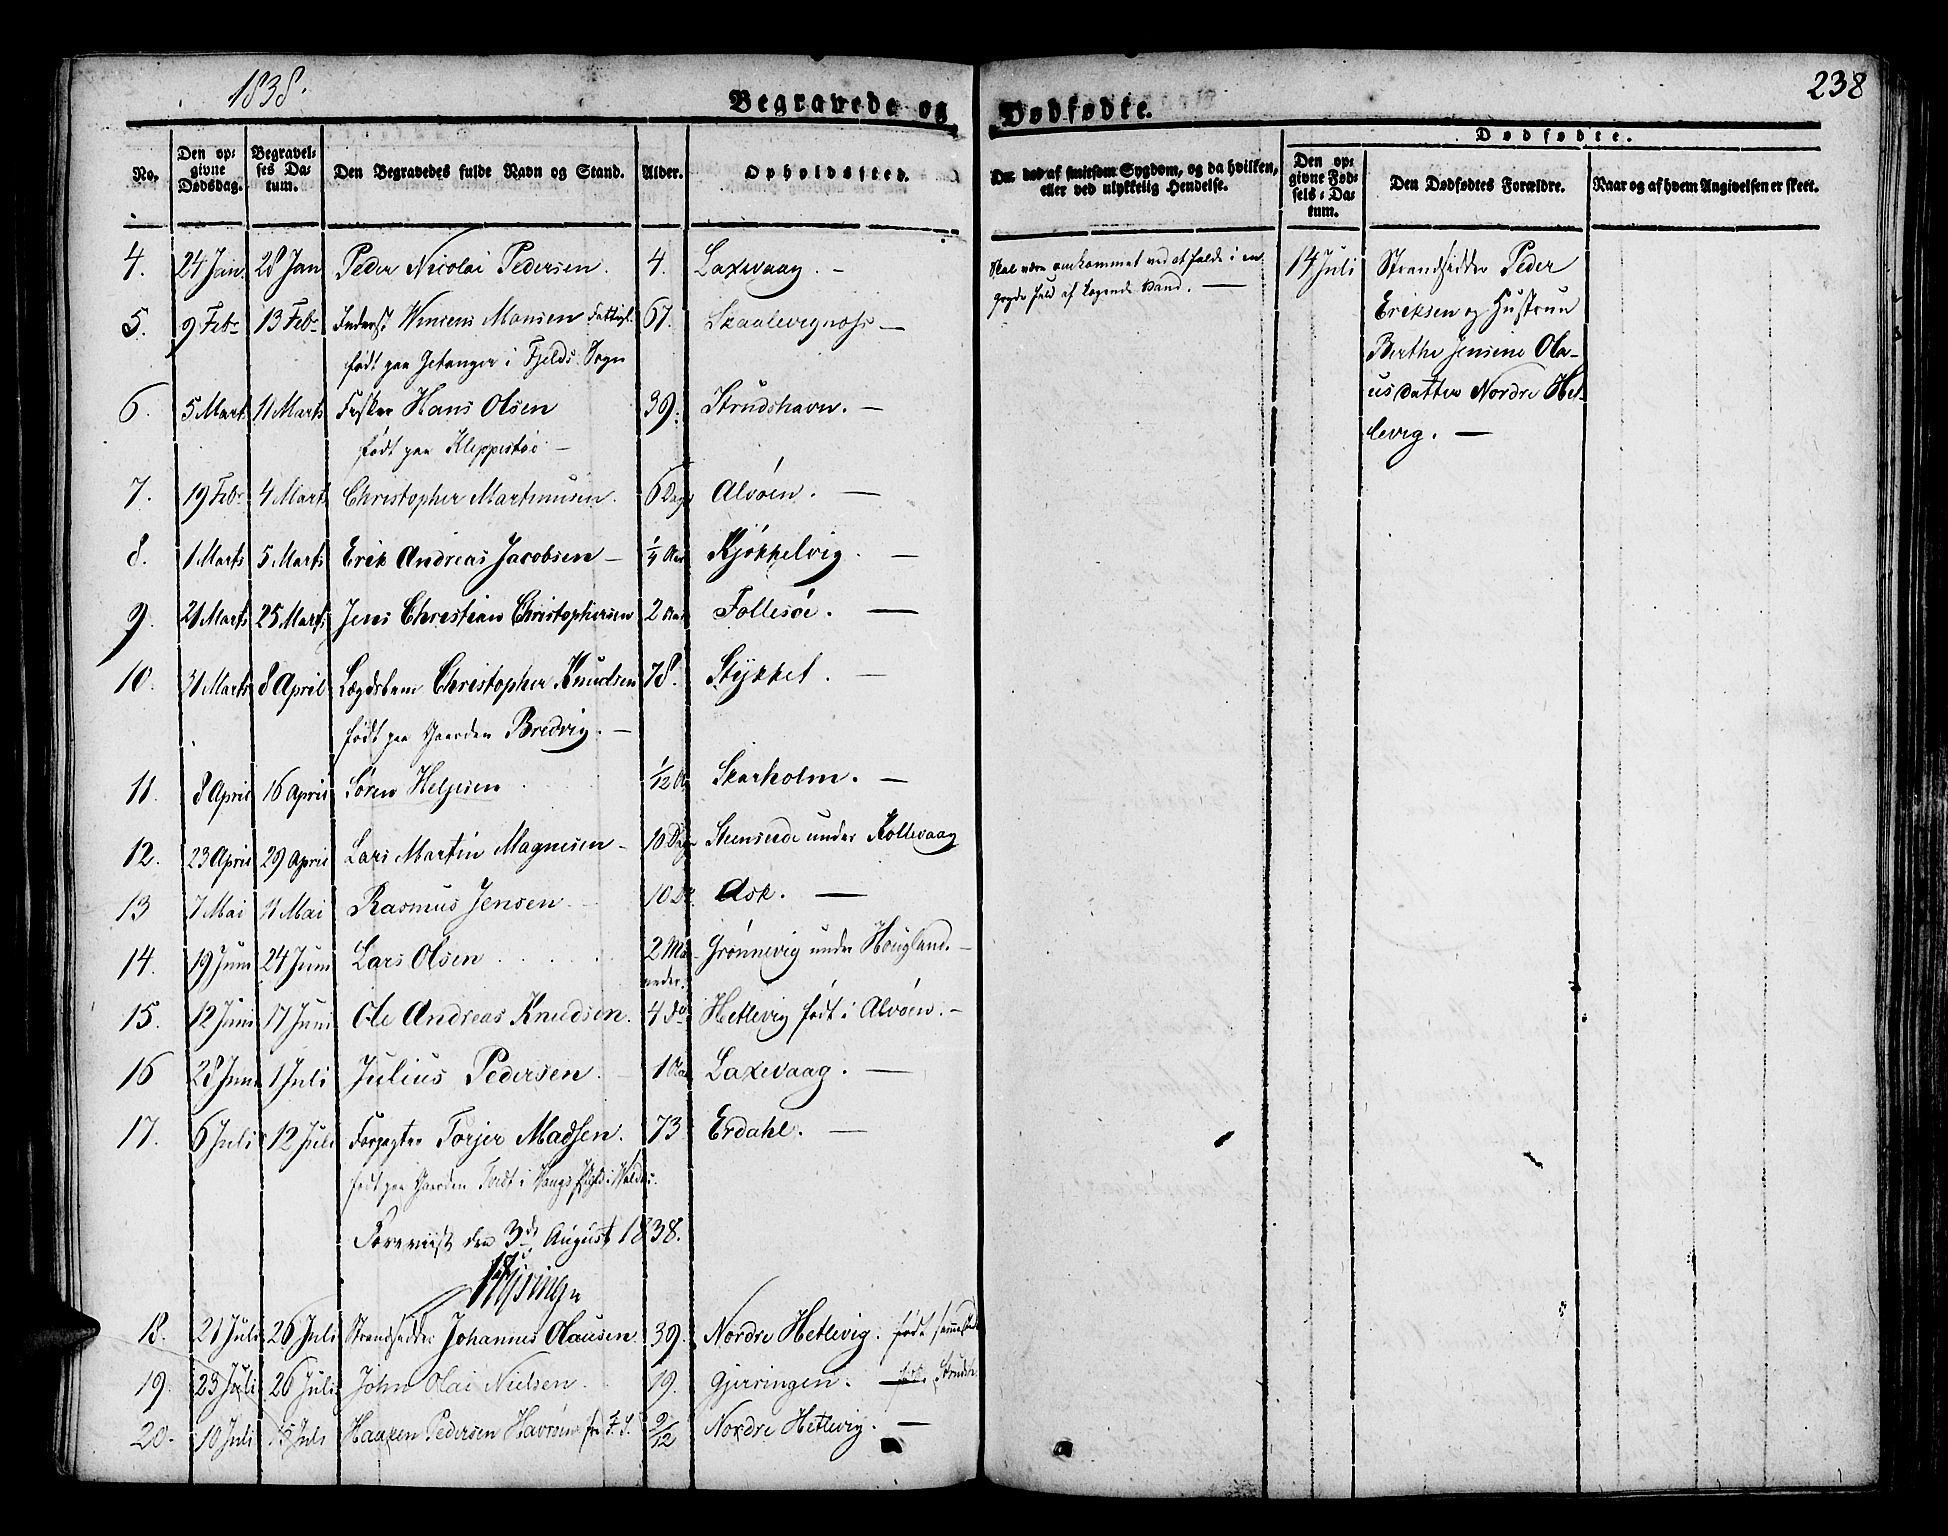 1838.
238
Begravede og Dødfødte.
No. Den opgivne Dødsdag. Begravelses Datum. Den Begravedes fulde Navn og Stand. Alder. Opholdssted. Om død af smitsom Sygdom, og da hvilken, eller ved ulykkelig Hendelse. Dødfødte. Den opgivne Fødsels-Datum. Den Dødfødtes Forældre. Naar og af hvem Angivelsen er skeet.
4. 24 Jan. 28 Jan Peder Nicolai Pedersen. 4. Laxevaag. —
Skal være omkommet ved at falde i en
Gryde fuld af kogende Vand. —
5. 9 Feb. 13 Feb. Inderst Winsens Monsen Fattigl. 67. Skaalevignæss —
født paa Getanger i Fjelds Sogn
6. 5 Marts 11 Marts Fisker Hans Olsen 39. Strudshavn. —
født paa Kleppestöe —
7. 19 Febr. 4 Marts Christopher Martinusen. 6 Dage Alvöen. —
8. 1 Marts 5 Marts Erik Andreas Jacobsen — 1/4 Aar Kjökkelvig. —
9. 21 Marts 25 Marts Jens Christian Christophersen 2 Aar Follesöe. —
10. 31 Marts 8 April Lægdslem Christopher Knudsen 78. Stykket. —
født paa Gaarden Bredvig. —
11. 8 April 16 April Sören Heljesen 1/12 Aar Skarholm. —
12. 23 April 29 April Lars Martin Magnesen — 10 Dage under Kollevaag
13 7 Mai 11 Mai Rasmus Jensen 10 D. Ask. —
14. 19 Juni 24 Juni Lars Olsen 2 Maaneder. Grönnevig under Hougland. —
15. 12 Juni 17 Juni Ole Andreas Knudsen. 4 do Hetlevig født i Alvöen. —
16 28 Juni 1 Juli Julius Pedersen. 1 Aar Laxevaag. —
17. 6 Juli 12 Juli Forpagter Torjer Madsen. 73 Erdahl. —
født paa Gaarden i Vangs
Foreviist den 3de August 1838.
18. 21 Juli 26 Juli Strandsidder Johannes Olausen 39. Nordre Hetlevig. født sammesteds
19. 23 Juli 26 Juli John Olai Nielsen 19. Gjerringen. —
20. 10 Juli 15 Juli Haaken Pedersen 2/12 Nordre Hetlevig. —
14 Juli Strandsidder Peder
Eriksen og Hustrue
Berthe Jensine Ola-
usdatter Nordre Het-
levig. —